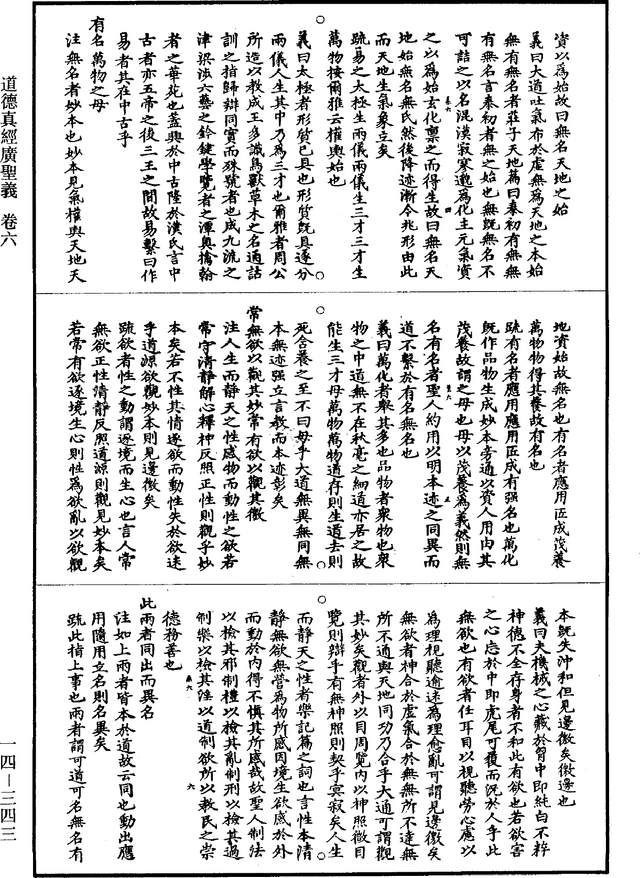 道德真經廣聖義 卷六
一四—三四三
資以為始故曰無名天地之始
義曰大道吐氣布於虛無為天地之本始
無有無名者莊子天地篇曰泰初有無無
有無名言泰初者無之始也無既無名不
可詰之以名混漠寂寥邈為化主元氣資
之以為始玄化稟之而得生故曰無名天
地始無名無氏然後降迹漸令兆形由此
而天地生氣象立矣
疏易之太極生兩儀兩儀生三才三才生
萬物按爾雅云權輿始也
義曰太極者形質已具也形質既具遂分
兩儀人生其中乃為三才也爾雅者周公
所造以教成王多識鳥獸草木之名通詁
訓之指歸辯同實而殊號者也成九流之
津梁涉六藝之鈐鍵學覽者之潭奧摛翰
者之華苑也蓋興於中古隆於漢氏言中
古者亦五帝之後三王之間故易繫曰作
易者其在中古乎
有名萬物之母
注無名者妙本也妙本見氣權輿天地天
地資始故無名也有名者應用匠成茂養
萬物物得其養故有名也
疏有名者應用應用匠成有強名也萬化
既作品物生成妙本旁通以資人用由其
茂養故謂之母也母以茂養為義然則無
名有名者聖人約用以明本迹之同異而
道不繫於有名無名也
義曰萬化者舉其多也品物者眾物也眾
物之中道無不在秋毫之細道亦居之故
能生三才母萬物萬物道存則生道去則
死含養之至不曰母乎大道無異無同無
本無迹強立言教而本迹彰矣
常無欲以觀其妙常有欲以觀其徼
注人生而靜天之性感物而動性之欲若
常守清靜解心釋神反照正性則觀乎妙
本矣若不性其情逐欲而動性失於欲迷
乎道源欲觀妙本則見邊徼矣
疏欲者性之動謂逐境而生心也言人常
無欲正性清靜反照道源則觀見妙本矣
若常有欲逐境生心則性為欲亂以欲觀
本既失沖和但見邊徼矣徼邊也
義曰夫機械之心藏於胷中即純白不粹
神德不全存身者不和此有欲也若欲害
之心忘於中即虎尾可履而況於人乎此
無欲也有欲者任耳目以視聽勞心慮以
為理視聽逾迷為理愈亂可謂見邊徼矣
無欲者神合於虛氣合於無無所不達無
所不通與天地同功乃合乎大通可謂觀
其妙矣觀者外以目周覽內以神照徹目
覽則辯乎有無神照則契乎寘寂矣人生
而靜天之性者樂記篇之詞也言性本清
靜無欲無營為物所感因境生欲感於外
而動於內得不慎其所感哉故聖人制法
以檢其邪制禮以檢其亂制刑以檢其過
制樂以檢其淫以道制欲所以教民之崇
德務善也
此兩者同出而異名
注如上兩者皆本於道故云同也動出應
用隨用立名則名異矣
疏此指上事也兩者謂可道可名無名有